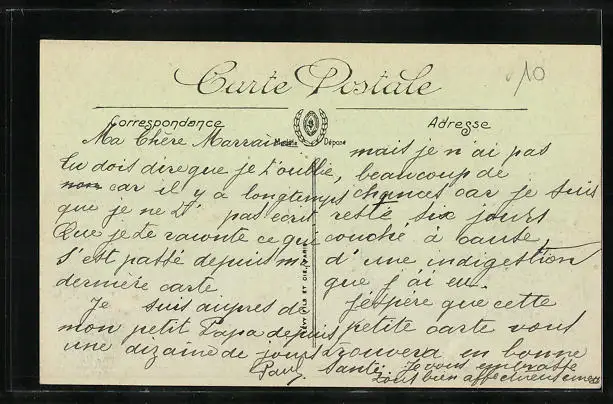 Carte Postale
10
Correspondance
Adresse
Marque Déposé
LÉVY FILS ET CIE, PARIS
Ma Chère Marraine
tu dois dire que je t'oublie,
non car il y a longtemps
que je ne t' pas écrit
Que je te raconte ce qui
s'est passé depuis m
dernière carte
Je suis auprès de
mon petit Papa depuis
une dizaine de jours
mais je n'ai pas
beaucoup de
chances car je suis
resté six jours
couché à cause
d'une indigestion
que j'ai eu.
j'éspère que cette
petite carte vous
trouvera en bonne
Santé. Je vous embrasse
tous bien affectueusement
Paul